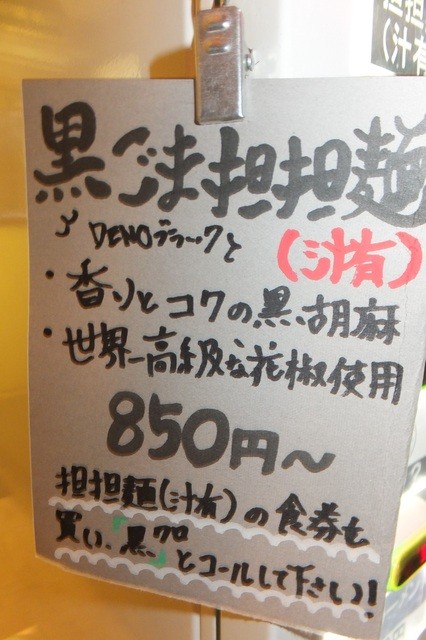 黒ごま担担麺
DEMOブラックと
(汁有)
・香りとコクの黒胡麻
・世界一高級な花椒使用
850円〜
担担麺(汁有)の食券を
買い、「黒プロ」とコールして下さい!